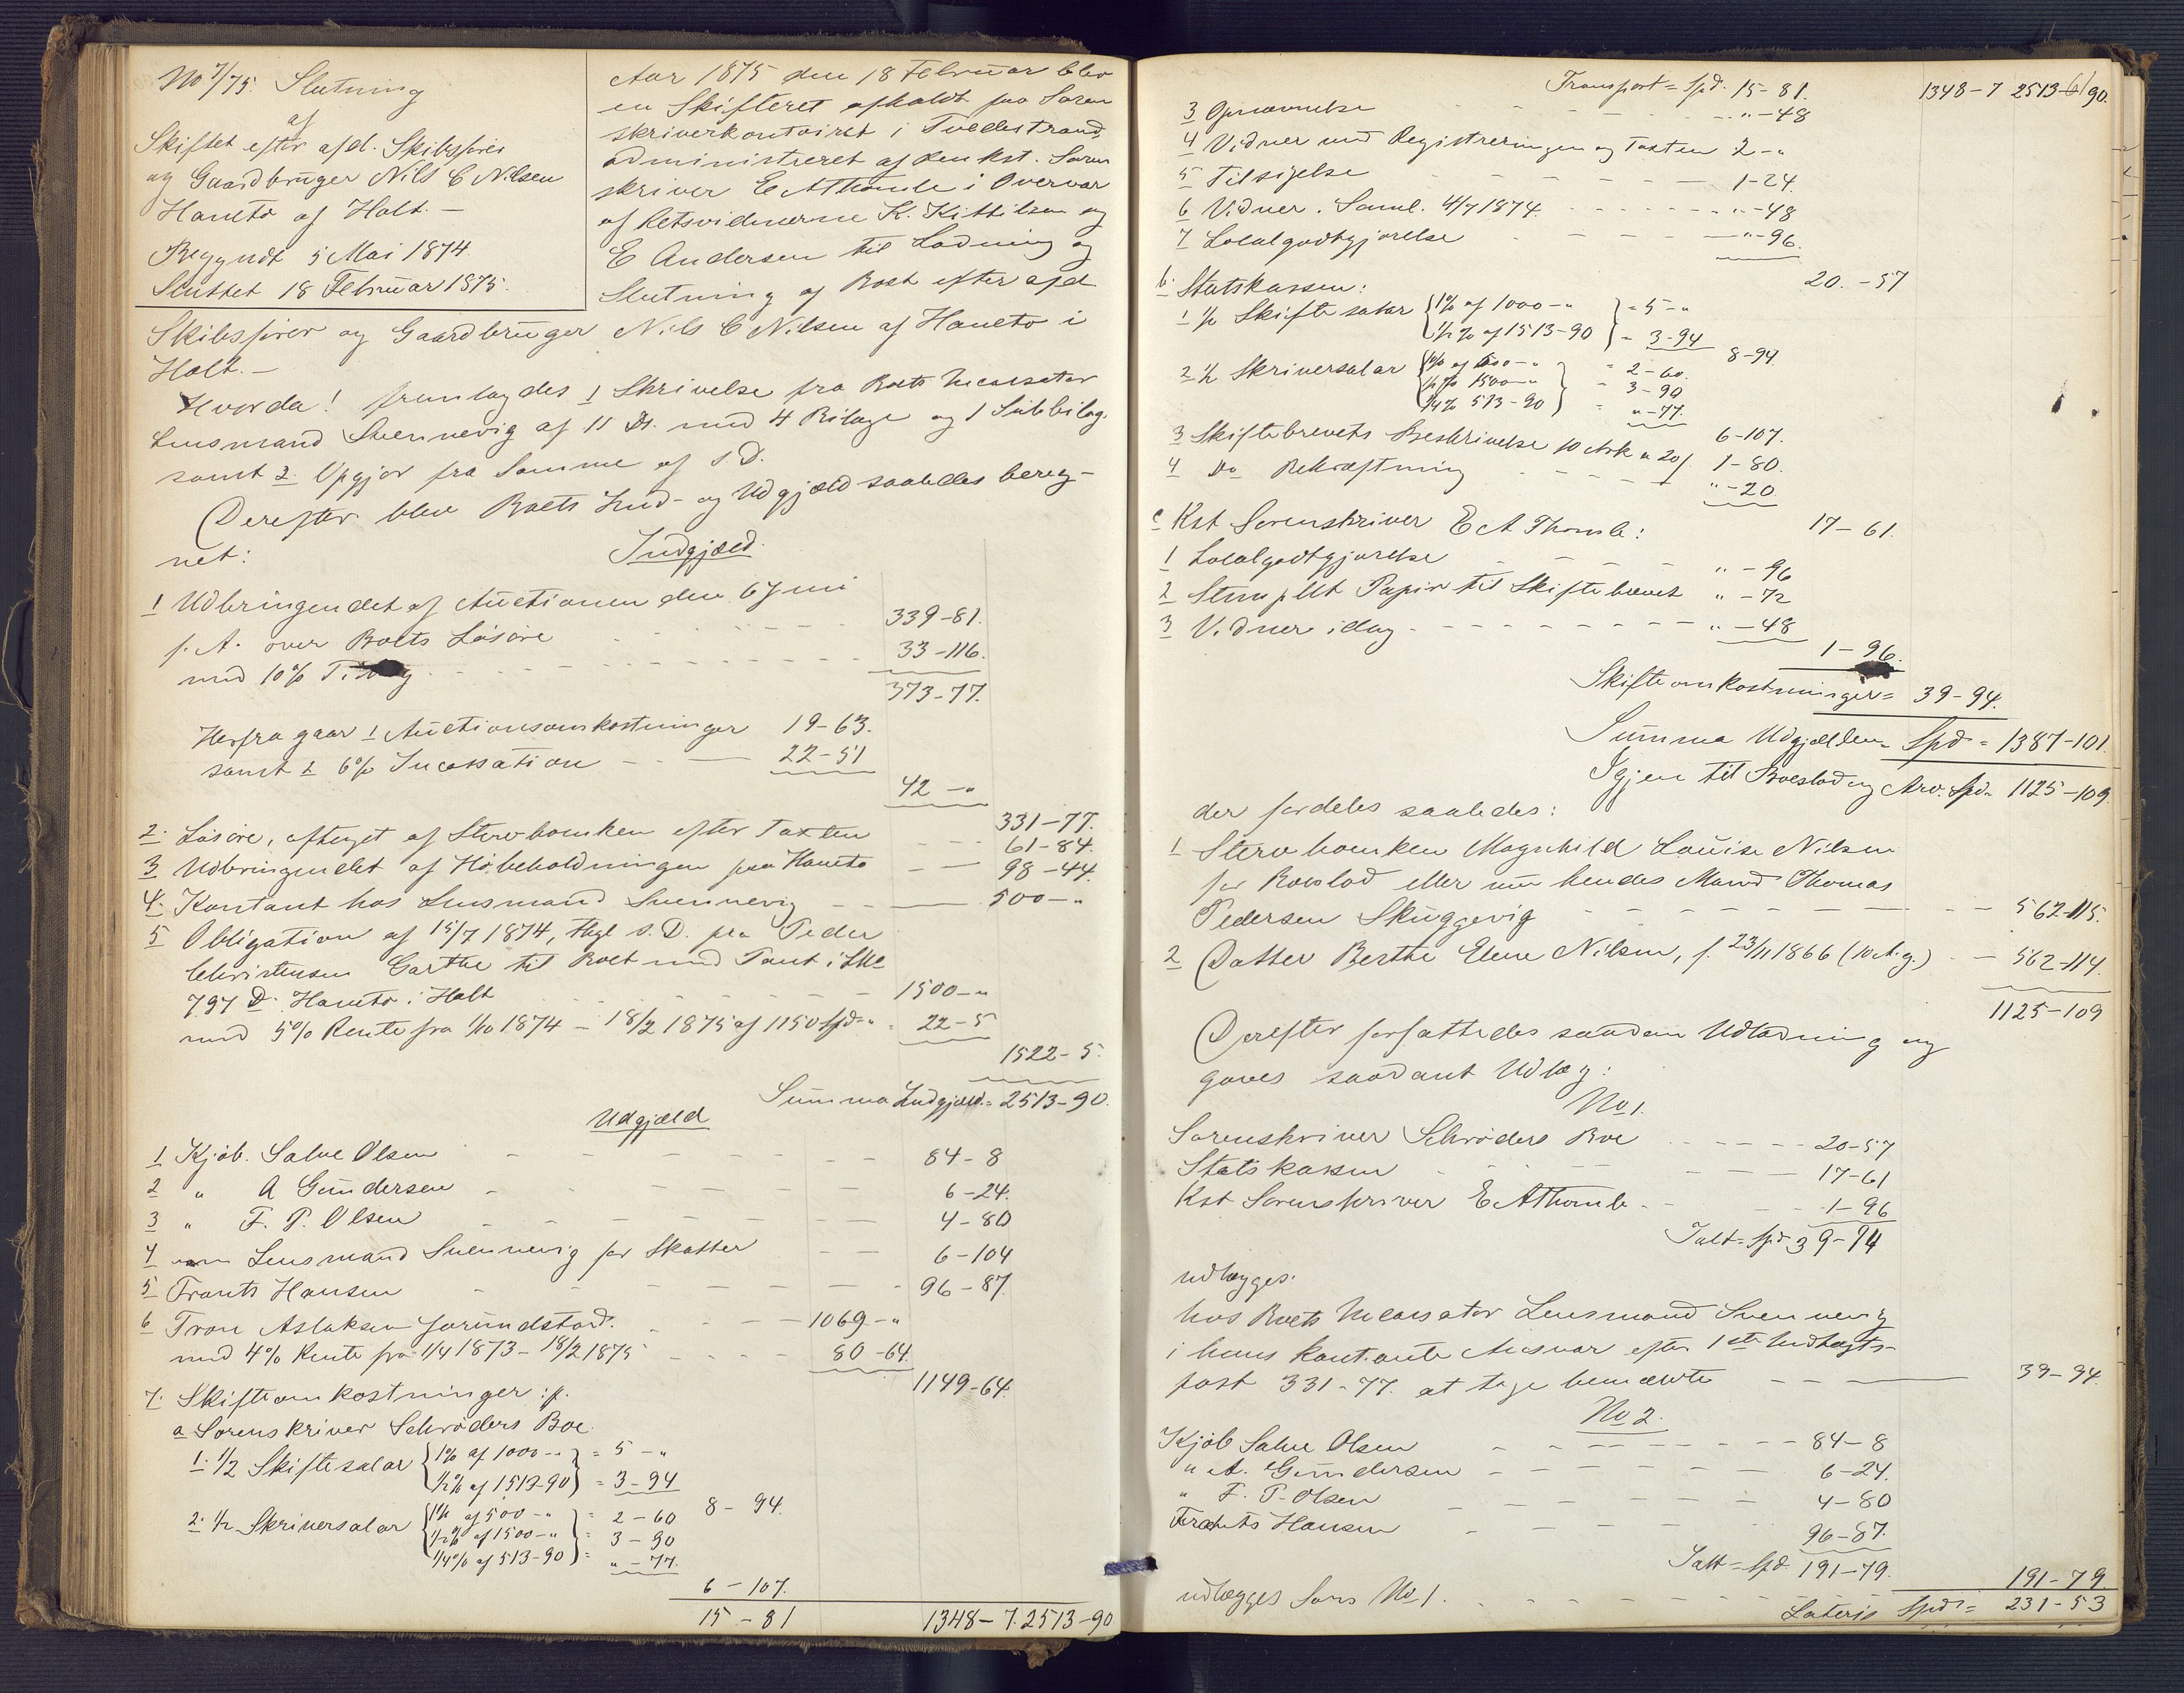 No 7/75. Slutning
af
Skiftet efter afd. Skibsfører
og Gaardbruger Nils C Nilsen
Haneto af Holt. —
Begyndt 5 Mai 1874.
Sluttet 18 Februar 1875.
Aar 1875 den 18 Februar blev
en Skifteret afholdt paa Soren
skriverkontoiret i Tvedestrand,
administreret af den kst. Soren
skriver E A Thomle i Overvær
af Retsvidnerne K. Kittilsen og
E Andersen til Lodning og
Slutning af Boet efter afd
Skibsfører og Gaardbruger Nils C Nilsen af Haneto i
Holt. —
Hvorda! fremlagdes 1 Skrivelse fra Boets Incassator
Lensmand Svennevig af 11 ds. med 4 Bilage og 1 Subbilag
samt 2 Opgjør fra Samme af s D.
Derefter blev Boets Ind- og Udgjæld saaledes bereg-
net:
Indgjæld.
1 Udbringendet af Auctionen den 6 Juni
f. A. over Boets Løsøre 339-81.
med 10% Tillæg 33-116.
373-77.
Herfra gaar 1 Auctionsomkostninger 19-63.
samt 2 6% Incassation 22-51
42 - "
331-77.
2. Løsøre, aftaget af Stervboenken efter Taxten 61-84.
3 Udbringendet af Høbeholdningen paa Haneto 98-44.
4. Kontant hos Lensmand Svennevig 500 - "
5 Obligation af 15/7 1874, thgl s. D. fra Peder
Christensen Garthe til Boet med Pant i
797 D. Haneto i Holt 1500 - "
med 5% Rente fra 1/10 1874 - 18/2 1875 af 1150 Spd - " 22-5
1522-5.
Summa Indgjæld = 2513-90.
Udgjæld
1 Kjøb. Salve Olsen 84-8
2 " A Gundersen 6-24.
3 " F. P. Olsen 4-80
4 Lensmand Svennevig for Skatter 6-104
5 Frants Hansen 96-87.
6 Tron Aslaksen Jorundstad. 1069 - "
med 4% Rente fra 1/4 1873 - 18/2 1875 80-64.
1149-64.
7. Skifteomkostninger :/.
a Sorenskriver Schrøders Boe.
1. 1/2 Skiftesalar {1% af 1000 - " = 5 - "
1/2% af 1513-90} = 3-94
8-94.
2. 1/2 Skriversalar {1% af 500 - " = 2-60
1/2% af 1500 - " = 3-90
1/4% af 513-90} = " - 77.
6-107.
15-81 1348-7. 2513-90
Transport = Spd. 15-81. 1348-7 2513-90.
3 Opnævnelse " - 48
4 Vidner med Registreringen og Taxten 2 - "
5 Tilsigelse 1-24.
6 Vidner. Saml. 4/7 1874. " - 48
7 Lokalgodtgjørelse " - 96.
20. - 57
b. Statskassen:
1 1/2 Skiftesalar {1% af 1000 - " } = 5 - "
1/2% af 1513-90 } = 3-94
8-94.
2 1/2 Skriversalar {1% af 500 - " = 2-60.
1/2% 1500 - " = 3-90
1/4% 513-90 } = " - 77.
6-107.
3 Skiftebrevets Beskrivelse 10 Ark a 20 1-80.
4 Do Bekræftning " - 20
17-61.
c Kst Sorenskriver E A Thomle:
1 Lokalgodtgjørelse " - 96
2 Stemplet Papir til Skiftebrevet " - 72
3 Vidner idag " - 48
1-96.
Skifteomkostninger = 39-94.
Summa Udgjælden = Spd = 1387-101.
Igjen til Boeslod og Arv. Spd = 1125-109.
der fordeles saaledes:
1 Stervboenken Magnhild Louise Nilsen
for Boeslod eller nu hendes Mand Thomas
Pedersen Skuggevig 562-115.
2 Datter Berthe Elene Nilsen, f. 23/11 1866 (10 A. g.) 562-114.
1125-109
Derefter forfattedes saadan Udlodning og
gaves saadant Udlæg:
No 1.
Sorenskriver Schrøders Boe 20-57
Statskassen 17-61
Kst Sorenskriver E A Thomle 1-96
Ialt = Spd 39-94
udlægges.
hos Boets Incassator Lensmand Svennevig
i hans kontante Ansvar efter 1ste Indtægts-
post 331-77. at tage benævnte 39-94.
No 2.
Kjøb Salve Olsen 84-8
" A. Gundersen 6-24.
" F. P. Olsen 4-80
Frants Hansen 96-87.
Ialt = Spd. 191-79.
udlægges som No 1. 191-79.
Lateris Spd = 231-53